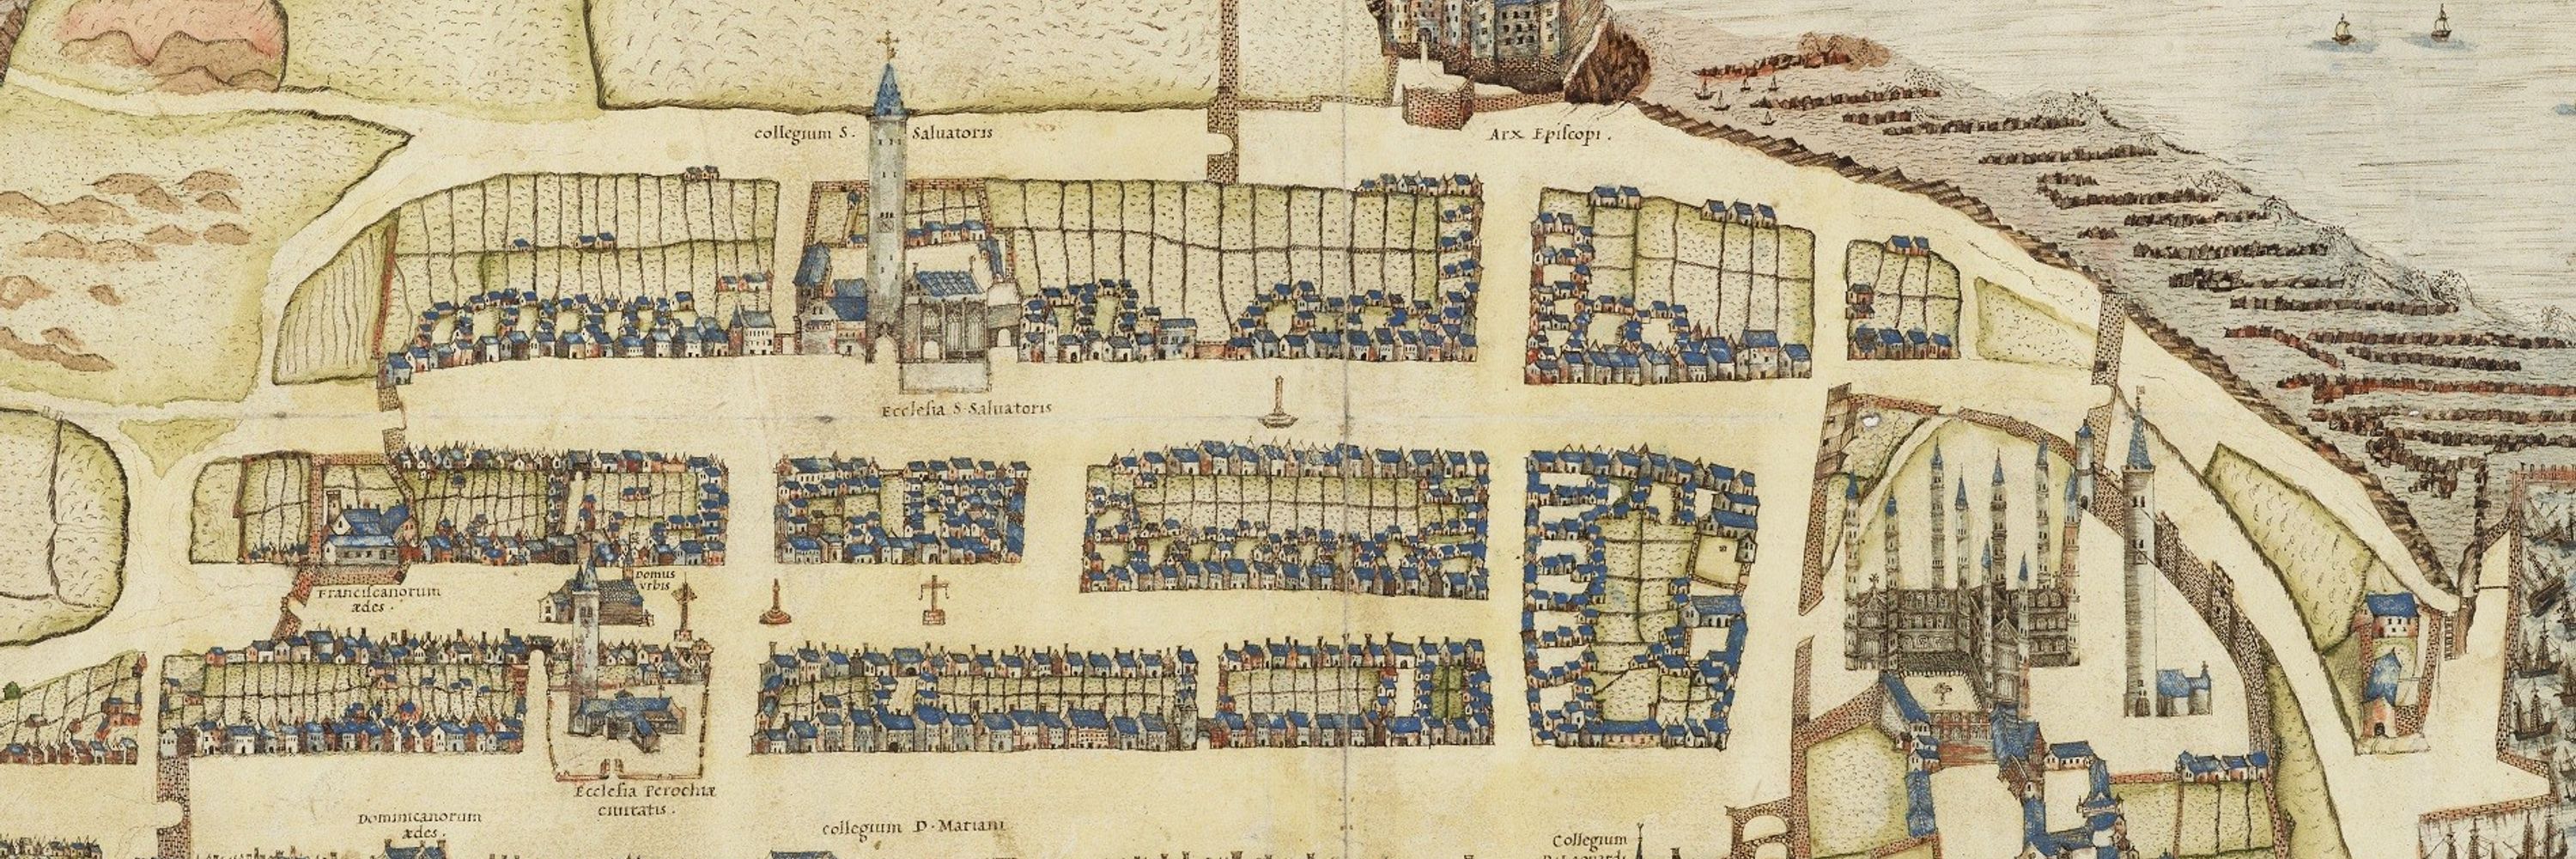 collegium S. Saluatoris
Arx Episcopi.
Ecclesia S. Saluatoris
Franciscanorum
ædes.
Domus
vrbis
Ecclesia Perochiæ
ciuitatis.
Dominicanorum
ædes.
Collegium D. Mariani
Collegium